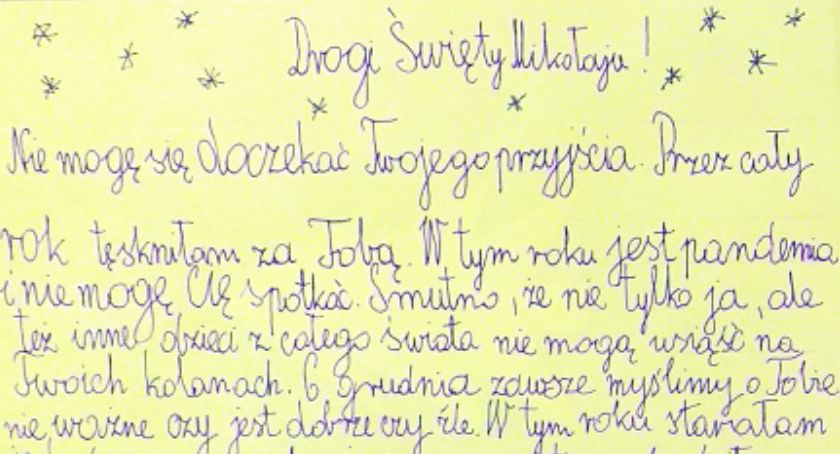 Drogi Święty Mikołaju!
Nie mogę się doczekać Twojego przyjścia. Przez cały
rok tęskniłam za Tobą. W tym roku jest pandemia
i nie mogę Cię spotkać. Smutno, że nie tylko ja, ale
też inne dzieci z całego świata nie mogą usiąść na
Twoich kolanach. 6 grudnia zawsze myślimy o Tobie
nie ważne czy jest dobrze czy źle. W tym roku starałam